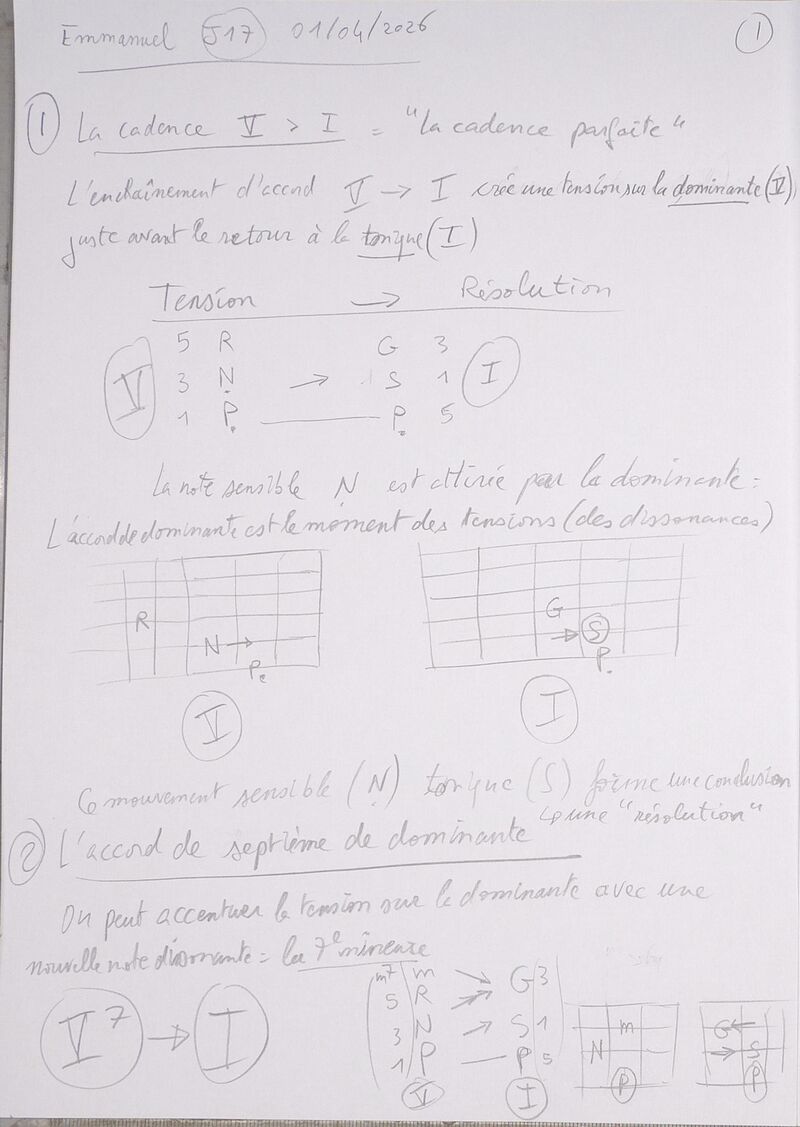 Emmanuel J17 01/04/2026 1
1 La cadence V > I = "la cadence parfaite"
L'enchaînement d'accord V → I crée une tension sur la dominante (V),
juste avant le retour à la tonique (I)
Tension → Résolution
5 R G 3
V 3 Ṇ → S 1 I
1 P̣ — P̣ 5
La note sensible Ṇ est attirée par la dominante :
L'accord de dominante est le moment des tensions (des dissonances)
R G
N → → S
P. P.
V I
Ce mouvement sensible (Ṇ) tonique (S) forme une conclusion
↳ une "résolution"
2 L'accord de septième de dominante
On peut accentuer la tension sur la dominante avec une
nouvelle note dissonante = la 7e mineure
m7 m → G 3
5 R →
V7 → I 3 N → S 1 N m G ←
1 P — P 5 → S
V I P P